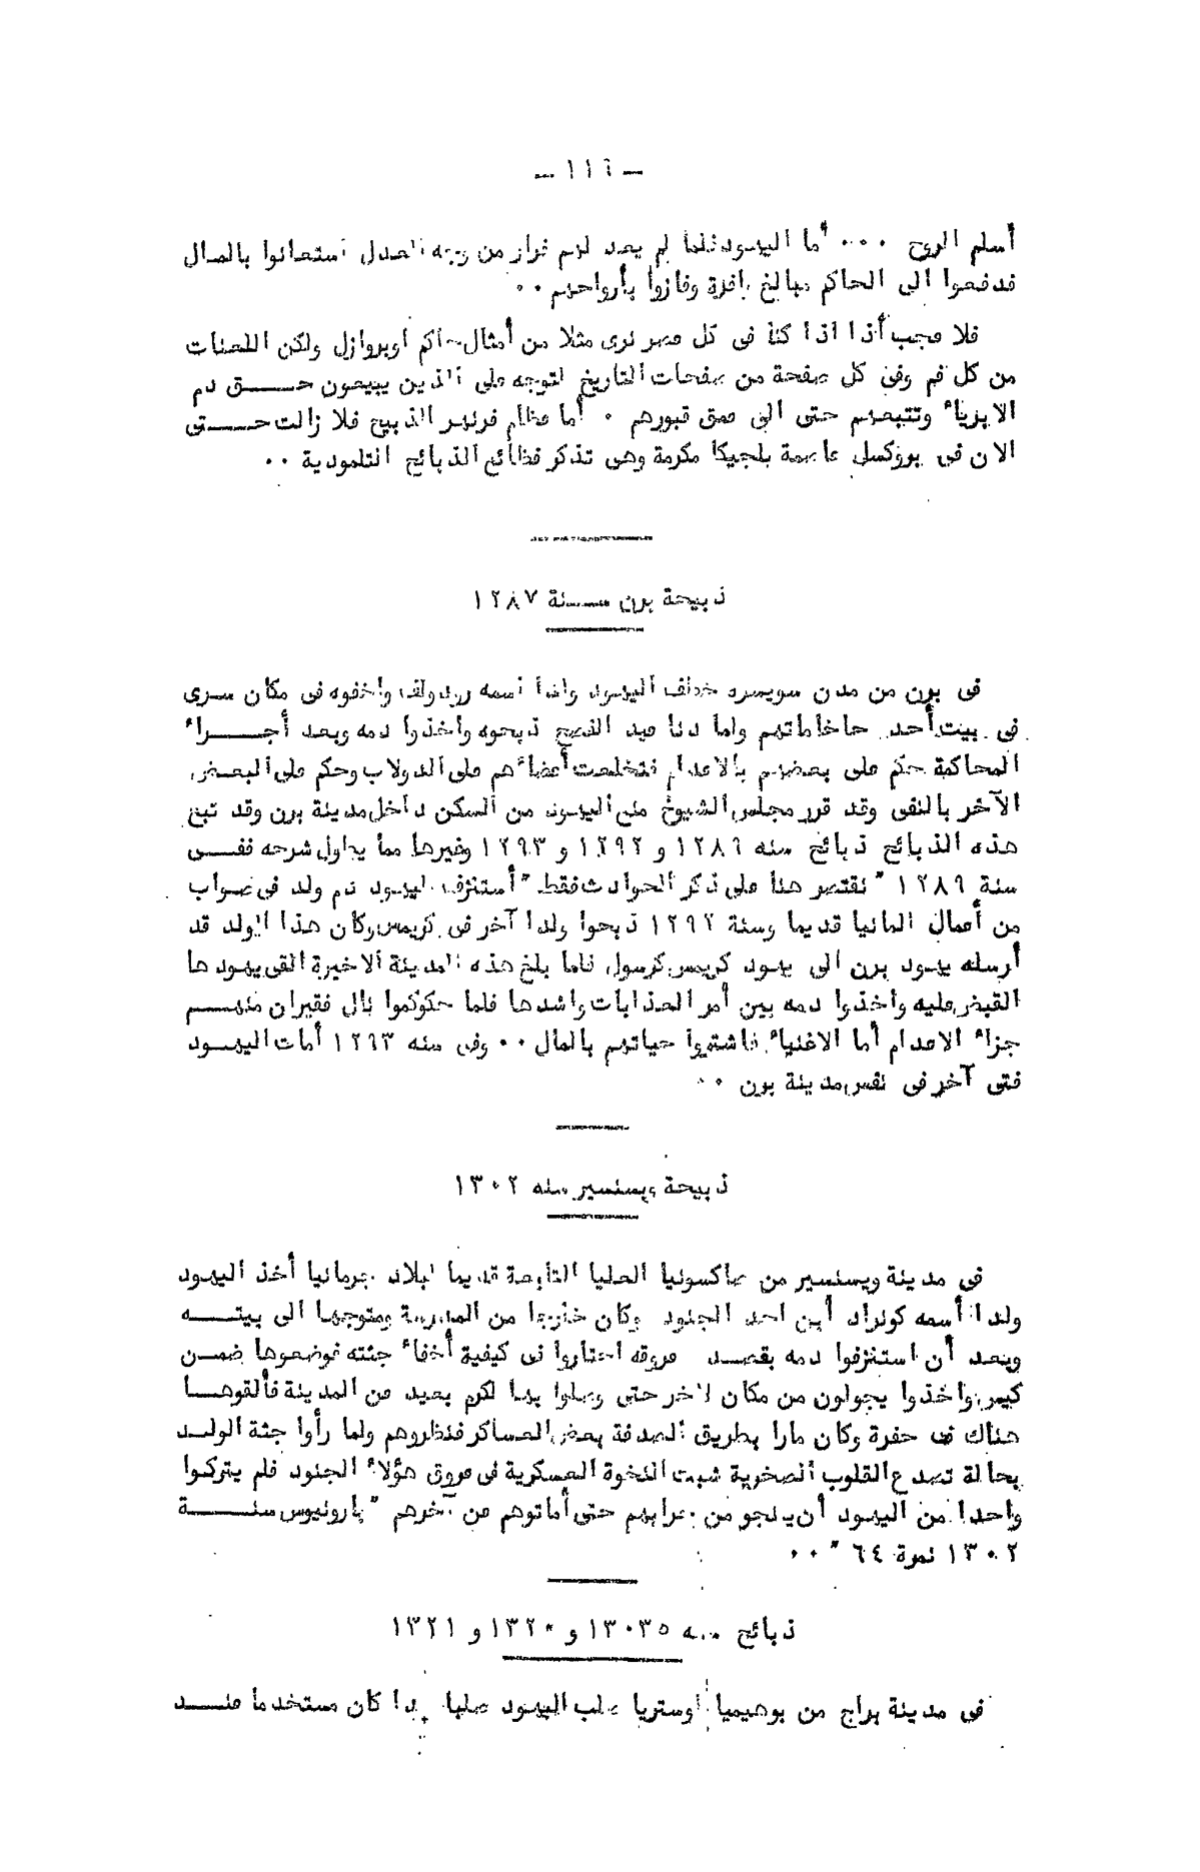 — ١١٦ —
أسلم الروح ٠٠٠ أما اليهود فلما لم يعد لهم فرار من وجه العدل استعانوا بالمال
فدفعوا الى الحاكم مبالغ وافرة وفازوا بأرواحهم ٠٠
فلا عجب أذا اذا كنا فى كل عصر نرى مثلا من أمثال حاكم اوبروازل ولكن اللعنات
من كل فم وفى كل صفحة من صفحات التاريخ لتوجه على الذين يبيعون حق دم
الابرياء وتتبعهم حتى الى عمق قبورهم ٠ أما عظام فرنهر الذبيح فلا زالت حتى
الان فى بروكسل عاصمة بلجيكا مكرمة وهى تذكر فظائع الذبائح التلمودية ٠٠
ذبيحة برن سنة ١٢٨٧
فى برن من مدن سويسره خطف اليهود ولدا اسمه رودولف واخفوه فى مكان سرى
فى بيت أحد حاخاماتهم ولما دنا عيد الفصح ذبحوه واخذوا دمه وبعد أجراء
المحاكمة حكم على بعضهم بالاعدام فتخلعت أعضاءهم على الدولاب وحكم على البعض
الآخر بالنفى وقد قرر مجلس الشيوخ منع اليهود من السكن داخل مدينة برن وقد تبع
هذه الذبائح ذبائح سنه ١٢٨٩ و ١٢٩٢ و ١٢٩٣ وغيرها مما يطول شرحه ففى
سنة ١٢٨٩ " نقتصر هنا على ذكر الحوادث فقط " أستنزف اليهود دم ولد فى صواب
من أعمال المانيا قديما وسنة ١٢٩٢ ذبحوا ولدا آخر فى كريمس وكان هذا الولد قد
أرسله يهود برن الى يهود كريمس كرسول فلما بلغ هذه المدينة الاخيرة القى يهودها
القبض عليه وأخذوا دمه بين أمر العذابات واشدها فلما حكوكموا نال فقيران منهم
جزاء الاعدام أما الاغنياء فاشتروا حياتهم بالمال ٠٠ وفى سنه ١٢٩٣ أمات اليهود
فتى آخر فى نفس مدينة برن ٠٠
ذبيحة ويسنسير سنه ١٣٠٢
فى مدينة ويسنسير من ساكسونيا العليا التابعة قديما لبلاد جرمانيا أخذ اليهود
ولدا أسمه كونراد أبن احد الجنود وكان خارجا من المدرسة ومتوجها الى بيته
وبعد أن استنزفوا دمه بقصد عروقه احتاروا فى كيفية أخفاء جثته فوضعوها ضمن
كيس واخذوا يجولون من مكان لاخر حتى وصلوا بها لكرم بعيد عن المدينة فألقوها
هناك فى حفرة وكان مارا بطريق الصدفة بعض العساكر فنظروهم ولما رأوا جثة الولد
بحالة تصدع القلوب الصخرية شبت النخوة العسكرية فى عروق هؤلاء الجنود فلم يتركوا
واحدا من اليهود أن ينجو من حرابهم حتى أماتوهم عن آخرهم " بارونيوس سنة
١٣٠٢ نمرة ٦٤ " ٠٠
ذبائح سنه ١٣٠٣٥ و ١٣٢٠ و ١٣٢١
فى مدينة براج من بوهيميا اوستريا صلب اليهود صلبا كان مستخدما عند